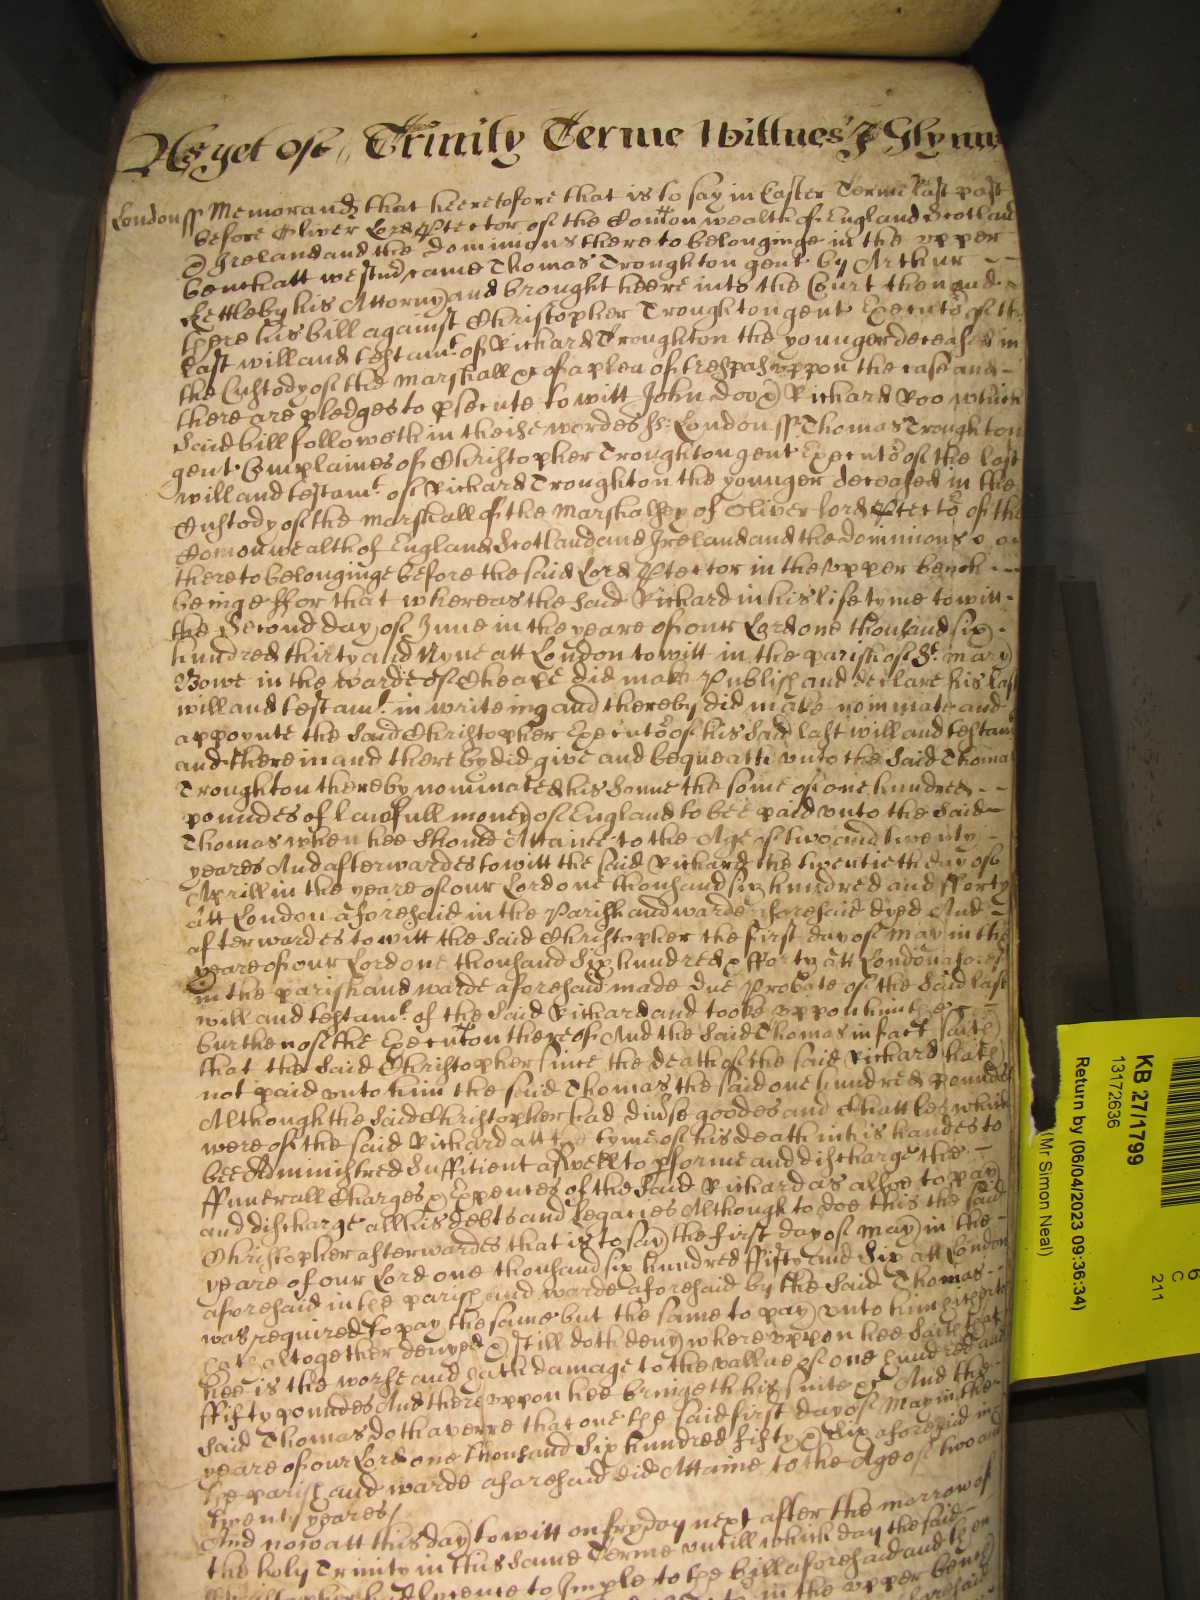 As yet of Trinity Terme Wittnes J Glynn
London ss Memorand that heeretofore that is to say in Easter Terme last past
before Oliver Lord Ptector of the Comon wealth of England Scotland
& Ireland and the dominions thereto belonginge in the vpper
bench att Westm came Thomas Troughton gent by Arthur
Kettleby his Attorny and brought heere into the Court then and
there his bill against Christopher Troughton gent Executor of the
last will and testamt of Richard Troughton the younger deceased in
the Custody of the Marshall &c of a plea of trespas vppon the case and
there are pledges to psecute to witt John Doo & Richard Roo which
said bill followeth in theise wordes ss: London ss Thomas Troughton
gent Complaines of Christopher Troughton gent Executor of the last
will and testamt of Richard Troughton the younger deceased in the
Custody of the Marshall of the Marshalsey of Oliver lord Ptector of the
Comonwealth of England Scotland and Ireland and the dominions
thereto belonginge before the said Lord Ptector in the vpper bench
beinge ffor that whereas the said Richard in his life tyme to witt
the second day of June in the yeare of our Lord one thousand six
hundred thirty and Nyne att London to witt in the parish of St Mary
Bowe in the warde of Cheape did make Publish and declare his last
will and testamt in writeing and thereby did make nominate and
appoynte the said Christopher Executor of his said last will and testam
and therein and thereby did give and bequeath vnto the said Thomas
Troughton thereby nominated his sonne the some of one hundred
poundes of lawfull money of England to bee paid vnto the said
Thomas when hee should Attaine to the Age of two and twenty
yeares And afterwardes to witt the said Richard the twentieth day of
Aprill in the yeare of our Lord one thousand six hundred and fforty
att London aforesaid in the Parish and warde aforesaid dyed And
afterwardes to witt the said Christopher the first day of May in the
yeare of our Lord one thousand six hundred & fforty att London afores
in the parish and warde aforesaid made due Probate of the said last
will and testamt of the said Richard and tooke vppon him the
burthen of the Execution thereof And the said Thomas in fact saith
that the said Christopher since the death of the said Richard hath
not paid vnto him the said Thomas the said one hundred poundes
Although the said Christopher had diuse goodes and Chattles which
were of the said Richard att the tyme of his death in his handes to
bee Administred Suffitient aswell to pforme and discharge the
ffunerall Charges & Expences of the said Richard as allsoe to pay
and discharge all his debts and legacies Although to doe this the said
Christopher afterwardes that is to say the first day of May in the
yeare of our Lord one thousand six hundred ffifty and six att London
aforesaid in the parish and warde aforesaid by the said Thomas
was required to pay the same but the same to pay vnto him hitherto
hath altogether denyed & still doth deny whervppon hee saith that
hee is the worse and hath damage to the vallue of one hundred and
ffifty poundes And thervppon hee bringeth his suite &c And the
said Thomas doth averre that one the said first day of May in the
yeare of our Lord one thousand six hundred fifty & six aforesaid in
the parish and warde aforesaid did Attaine to the Age of two and
twenty yeares/
And now att this day to witt on fryday next after the morrow of
the holy Trinity in this same Terme vntill which day the said
Christopher had lycence to Imple to the bill aforesaid and then
in the vpper bench
KB 27/1799
13172636
Return by (06/04/2023 09:36:34)
(Mr Simon Neal)
6
C
211